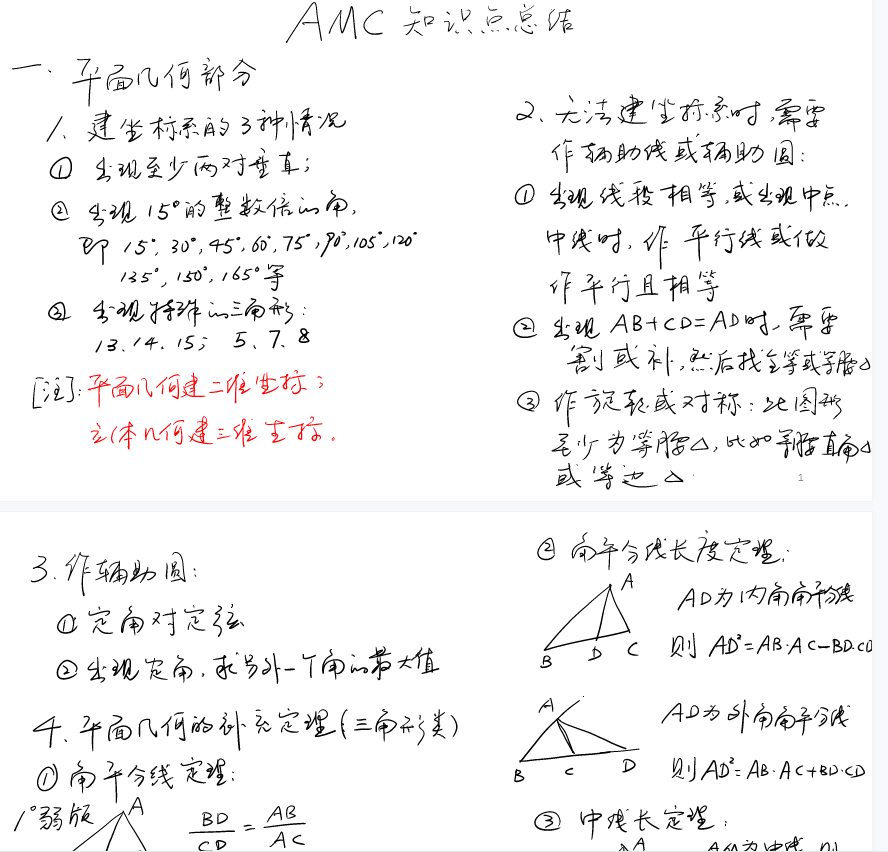 AMC 知识点总结
一. 平面几何部分
1. 建坐标系的3种情况
① 出现至少两对垂直;
② 出现15°的整数倍的角,
即 15°, 30°, 45°, 60°, 75°, 90°, 105°, 120°
135°, 150°, 165°等
③ 出现特殊的三角形:
13、14、15; 5、7、8
[注]: 平面几何建二维坐标;
立体几何建三维坐标.
2、无法建坐标系时,需要
作辅助线或辅助圆:
① 出现线段相等,或出现中点.
中线时,作 平行线或做
作平行且相等
② 出现 AB+CD=AD时,需要
割或补,然后找全等或等腰△
③ 作旋转或对称:此图形
至少为等腰△,比如等腰直角△
或等边△
1
3. 作辅助圆:
① 定角对定弦
② 出现定角,求另外一个角的最大值
4、平面几何的补充定理(三角形类)
① 角平分线定理:
1°弱版
A
BD/CD = AB/AC
② 角平分线长度定理:
A
B D C
AD为内角角平分线
则 AD²=AB·AC-BD·CD
A
B C D
AD为外角角平分线
则AD²=AB·AC+BD·CD
③ 中线长定理:
A